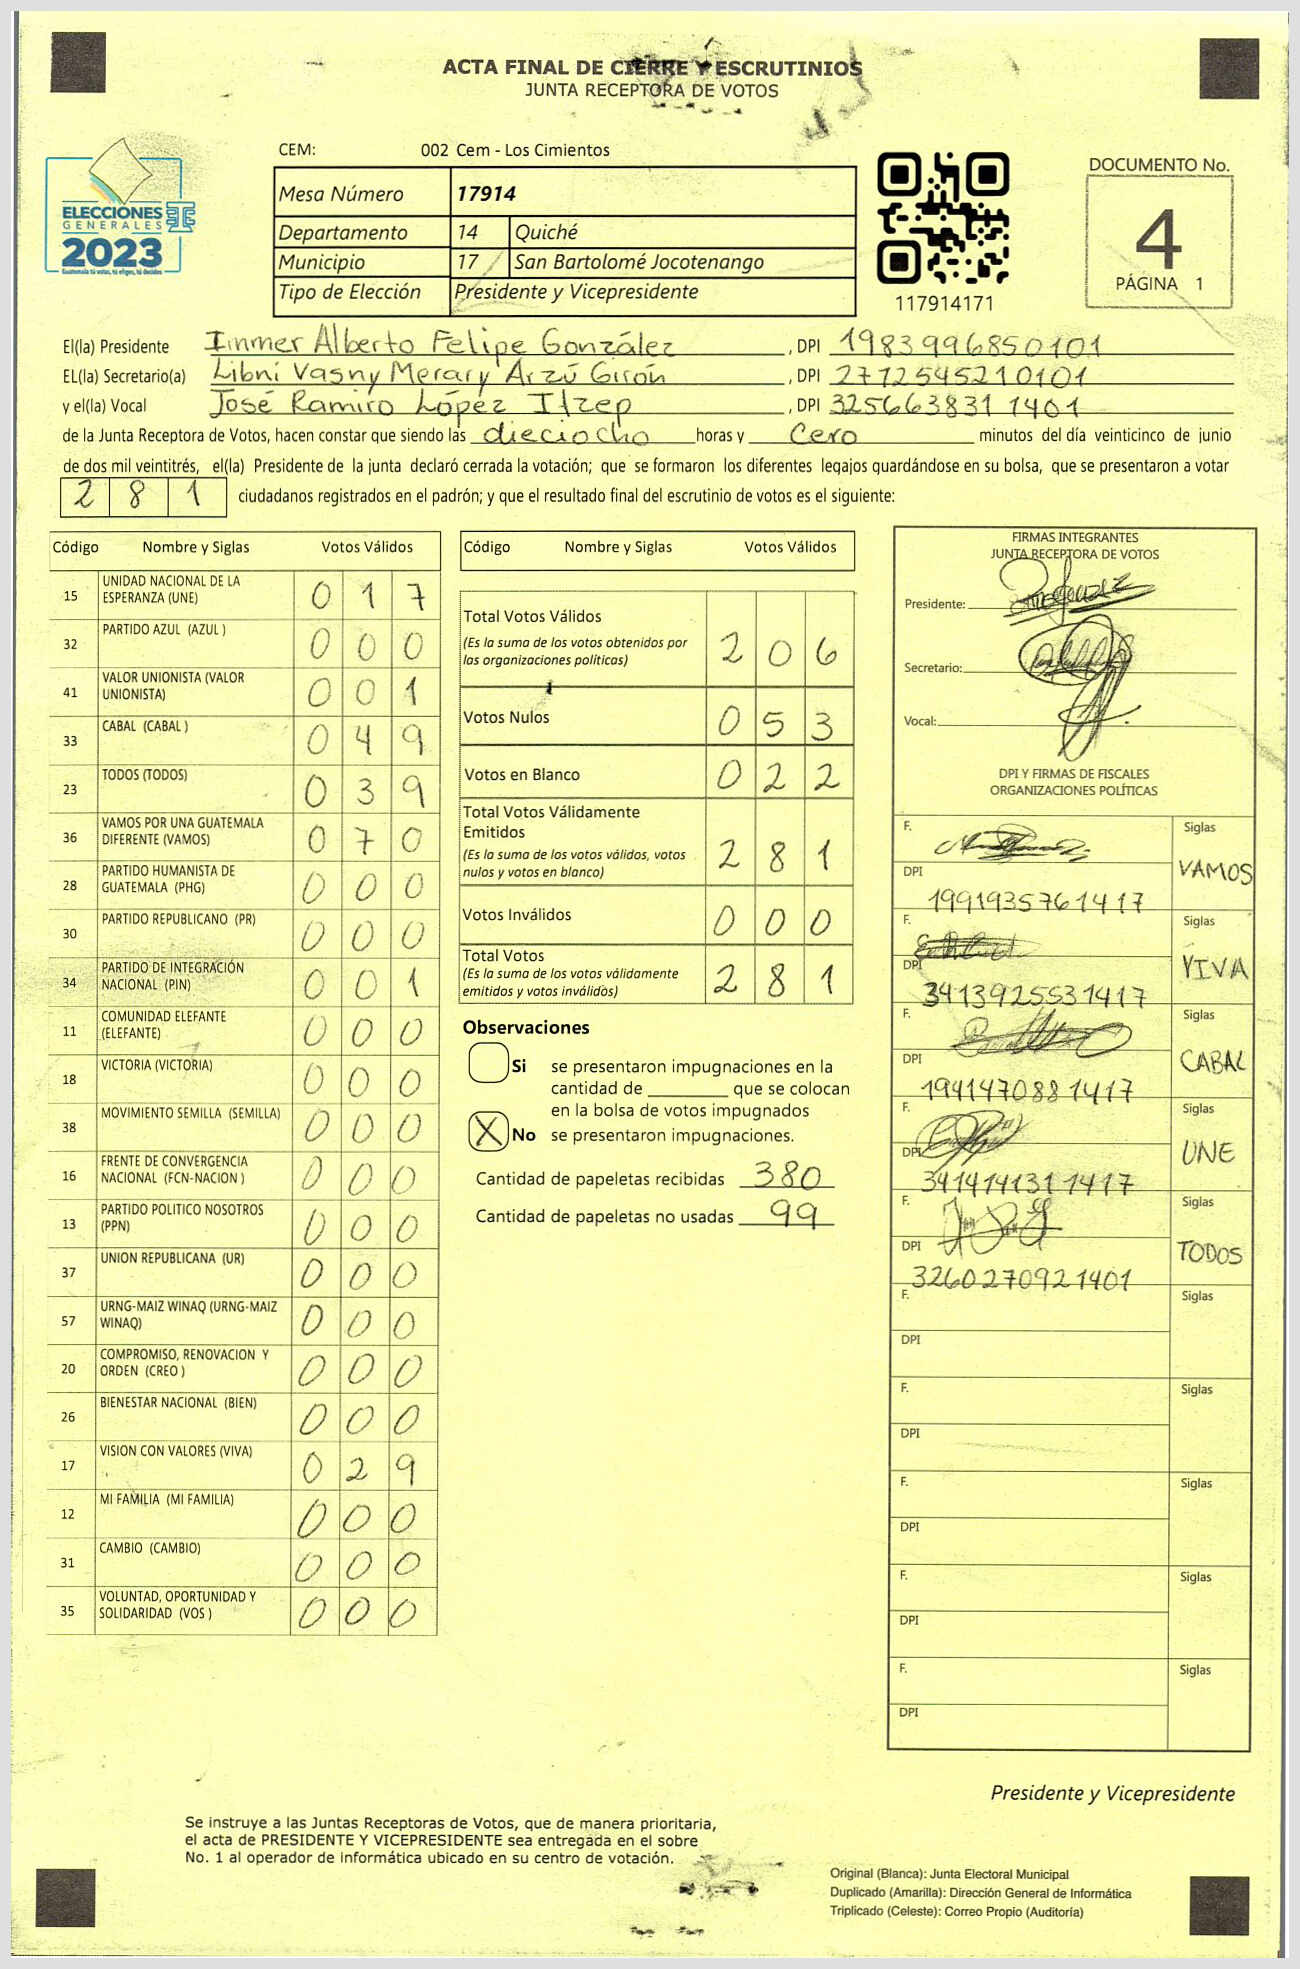 ACTA FINAL DE CIERRE Y ESCRUTINIOS
JUNTA RECEPTORA DE VOTOS
ELECCIONES
GENERALES
2023
Guatemala tú votas, tú eliges, tú decides
CEM: 002 Cem - Los Cimientos
Mesa Número 17914
Departamento 14 Quiché
Municipio 17 San Bartolomé Jocotenango
Tipo de Elección Presidente y Vicepresidente
117914171
DOCUMENTO No.
4
PÁGINA 1
El(la) Presidente Inmer Alberto Felipe González , DPI 1983996850101
EL(la) Secretario(a) Libni Vasny Merary Arzú Girón , DPI 2772545210101
y el(la) Vocal José Ramiro López Itzep , DPI 3256638311401
de la Junta Receptora de Votos, hacen constar que siendo las dieciocho horas y cero minutos del día veinticinco de junio
de dos mil veintitrés, el(la) Presidente de la junta declaró cerrada la votación; que se formaron los diferentes legajos guardándose en su bolsa, que se presentaron a votar
281 ciudadanos registrados en el padrón; y que el resultado final del escrutinio de votos es el siguiente:
Código Nombre y Siglas Votos Válidos
15 UNIDAD NACIONAL DE LA ESPERANZA (UNE) 017
32 PARTIDO AZUL (AZUL ) 000
41 VALOR UNIONISTA (VALOR UNIONISTA) 001
33 CABAL (CABAL ) 049
23 TODOS (TODOS) 039
36 VAMOS POR UNA GUATEMALA DIFERENTE (VAMOS) 070
28 PARTIDO HUMANISTA DE GUATEMALA (PHG) 000
30 PARTIDO REPUBLICANO (PR) 000
34 PARTIDO DE INTEGRACIÓN NACIONAL (PIN) 001
11 COMUNIDAD ELEFANTE (ELEFANTE) 000
18 VICTORIA (VICTORIA) 000
38 MOVIMIENTO SEMILLA (SEMILLA) 000
16 FRENTE DE CONVERGENCIA NACIONAL (FCN-NACION ) 000
13 PARTIDO POLITICO NOSOTROS (PPN) 000
37 UNION REPUBLICANA (UR) 000
57 URNG-MAIZ WINAQ (URNG-MAIZ WINAQ) 000
20 COMPROMISO, RENOVACION Y ORDEN (CREO ) 000
26 BIENESTAR NACIONAL (BIEN) 000
17 VISION CON VALORES (VIVA) 029
12 MI FAMILIA (MI FAMILIA) 000
31 CAMBIO (CAMBIO) 000
35 VOLUNTAD, OPORTUNIDAD Y SOLIDARIDAD (VOS ) 000
Código Nombre y Siglas Votos Válidos
Total Votos Válidos 206
(Es la suma de los votos obtenidos por
las organizaciones políticas)
Votos Nulos 053
Votos en Blanco 022
Total Votos Válidamente
Emitidos 281
(Es la suma de los votos válidos, votos
nulos y votos en blanco)
Votos Inválidos 000
Total Votos 281
(Es la suma de los votos válidamente
emitidos y votos inválidos)
Observaciones
Si se presentaron impugnaciones en la
cantidad de ________ que se colocan
en la bolsa de votos impugnados
X No se presentaron impugnaciones.
Cantidad de papeletas recibidas 380
Cantidad de papeletas no usadas 99
FIRMAS INTEGRANTES
JUNTA RECEPTORA DE VOTOS
Presidente:
Secretario:
Vocal:
DPI Y FIRMAS DE FISCALES
ORGANIZACIONES POLÍTICAS
F. Siglas
DPI 1991935761417 VAMOS
F. Siglas
DPI 3413925531417 VIVA
F. Siglas
DPI 1941470881417 CABAL
F. Siglas
DPI 3414141311417 UNE
F. Siglas
DPI 3260270921401 TODOS
F. Siglas
DPI
F. Siglas
DPI
F. Siglas
DPI
F. Siglas
DPI
F. Siglas
DPI
Presidente y Vicepresidente
Se instruye a las Juntas Receptoras de Votos, que de manera prioritaria,
el acta de PRESIDENTE Y VICEPRESIDENTE sea entregada en el sobre
No. 1 al operador de informática ubicado en su centro de votación.
Original (Blanca): Junta Electoral Municipal
Duplicado (Amarilla): Dirección General de Informática
Triplicado (Celeste): Correo Propio (Auditoría)